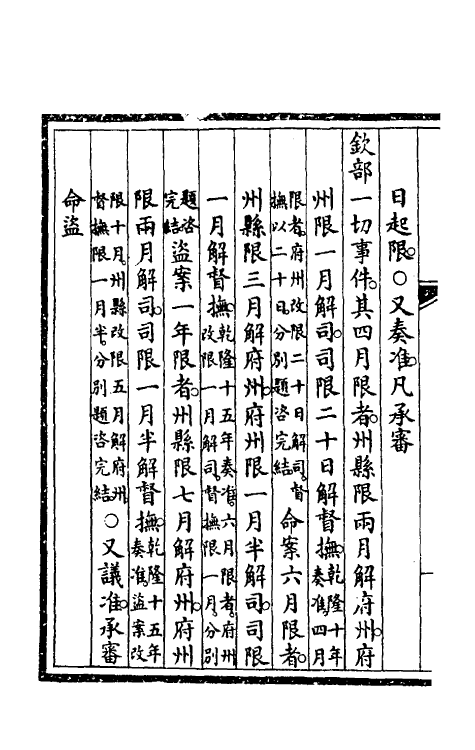 日起限。○又奏准。凡承審
欽部一切事件。其四月限者。州縣限兩月解府州。府
州限一月解司。司限二十日解督撫。乾隆十年奏准。四月
限者。府州改限二十日解司。督撫以二十日分別題咨完結。命案六月限者。
州縣限三月解府州。府州限一月半解司。司限
一月解督撫。乾隆十五年奏准。六月限者。府州改限一月解司。督撫限一月。分別
題咨完結。盜案一年限者。州縣限七月解府州。府州
限兩月解司。司限一月半解督撫。乾隆十五年奏准。盜案改
限十月。州縣改限五月解府州。督撫限一月半。分別題咨完結。○又議准。承審
命盜